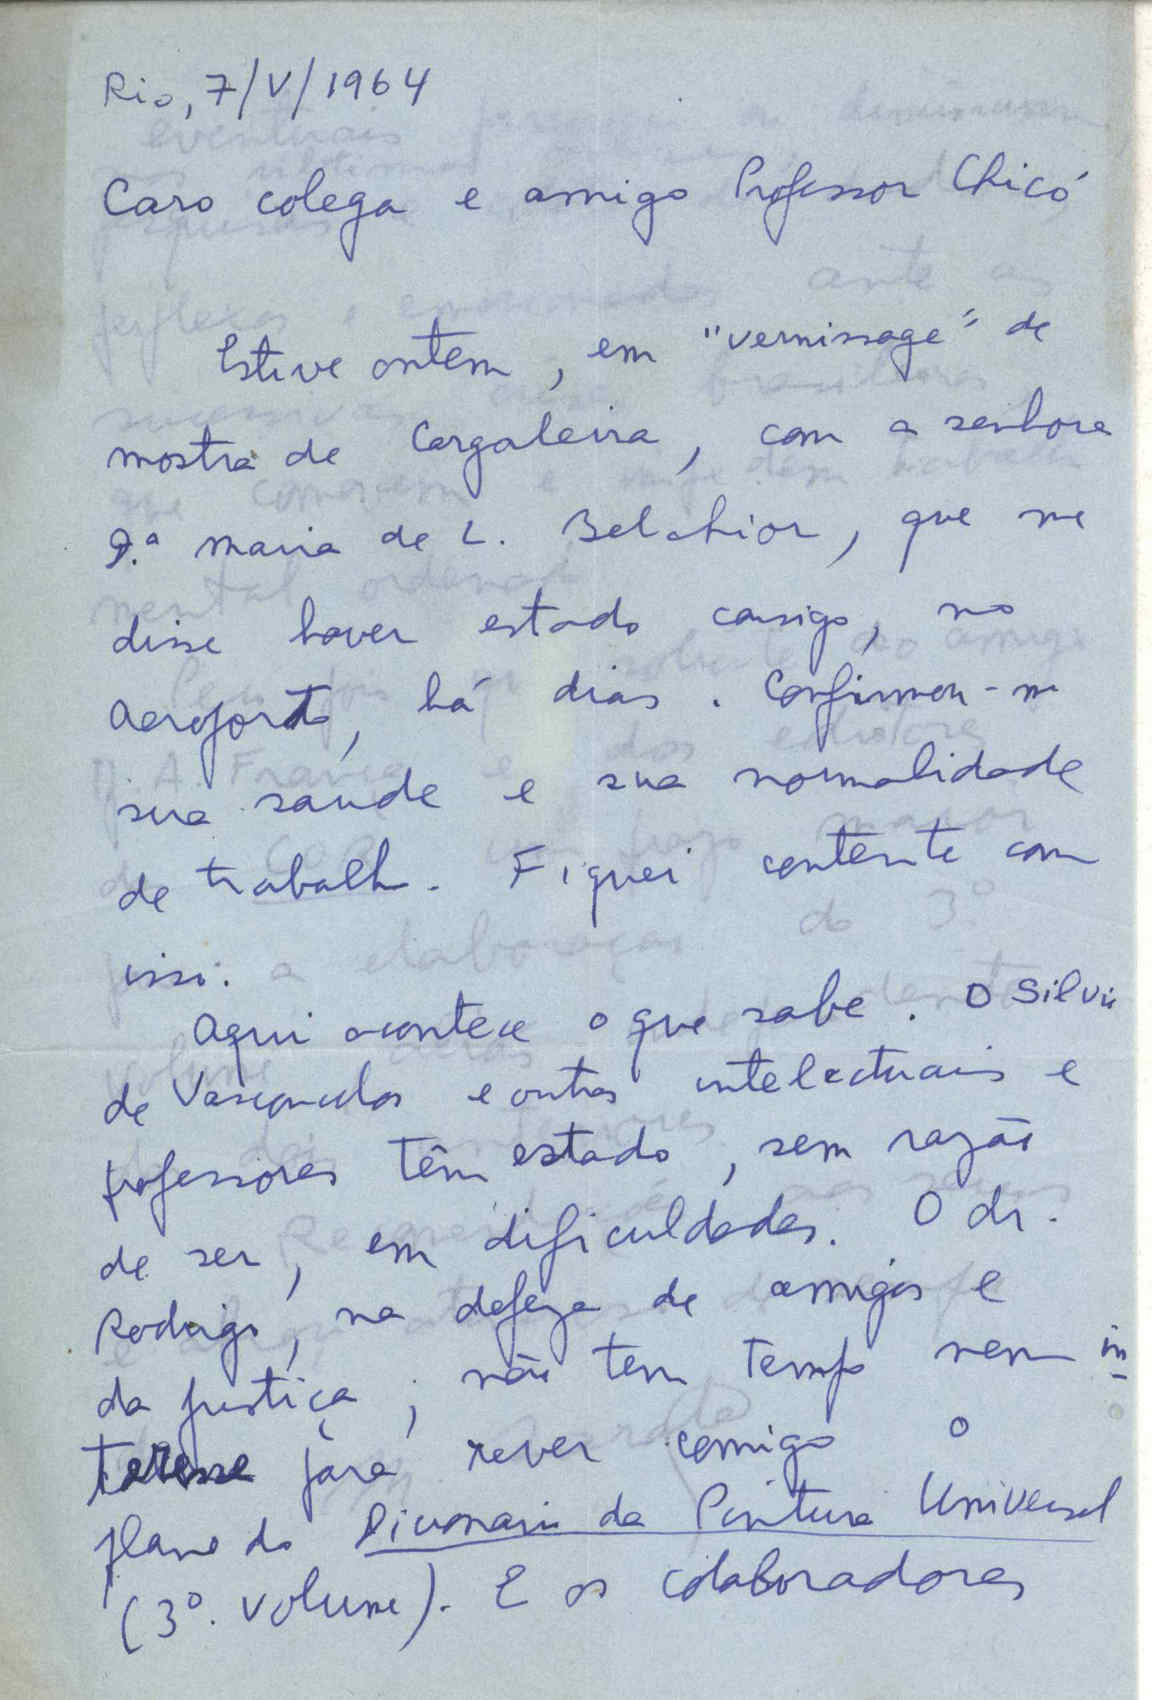 Rio, 7/V/1964
Caro colega e amigo Professor Chicó
Estive ontem, em "vernissage" de
mostra de Cargaleira, com a senhora
D.ª Maria de L. Belchior, que me
disse haver estado consigo, no
aeroporto, há dias. Confirmou-me
sua saúde e sua normalidade
de trabalho. Fiquei contente com
isso.
Aqui acontece o que sabe. O Silvio
de Vasconcelos e outros intelectuais e
professores têm estado, sem razão
de ser, em dificuldades. O dr.
Rodrigo, na defeza de amigos e
da justiça, não tem tempo nem in-
teresse para rever comigo o
plano do Dicionario da Pintura Universal
(3º. volume). E os colaboradores